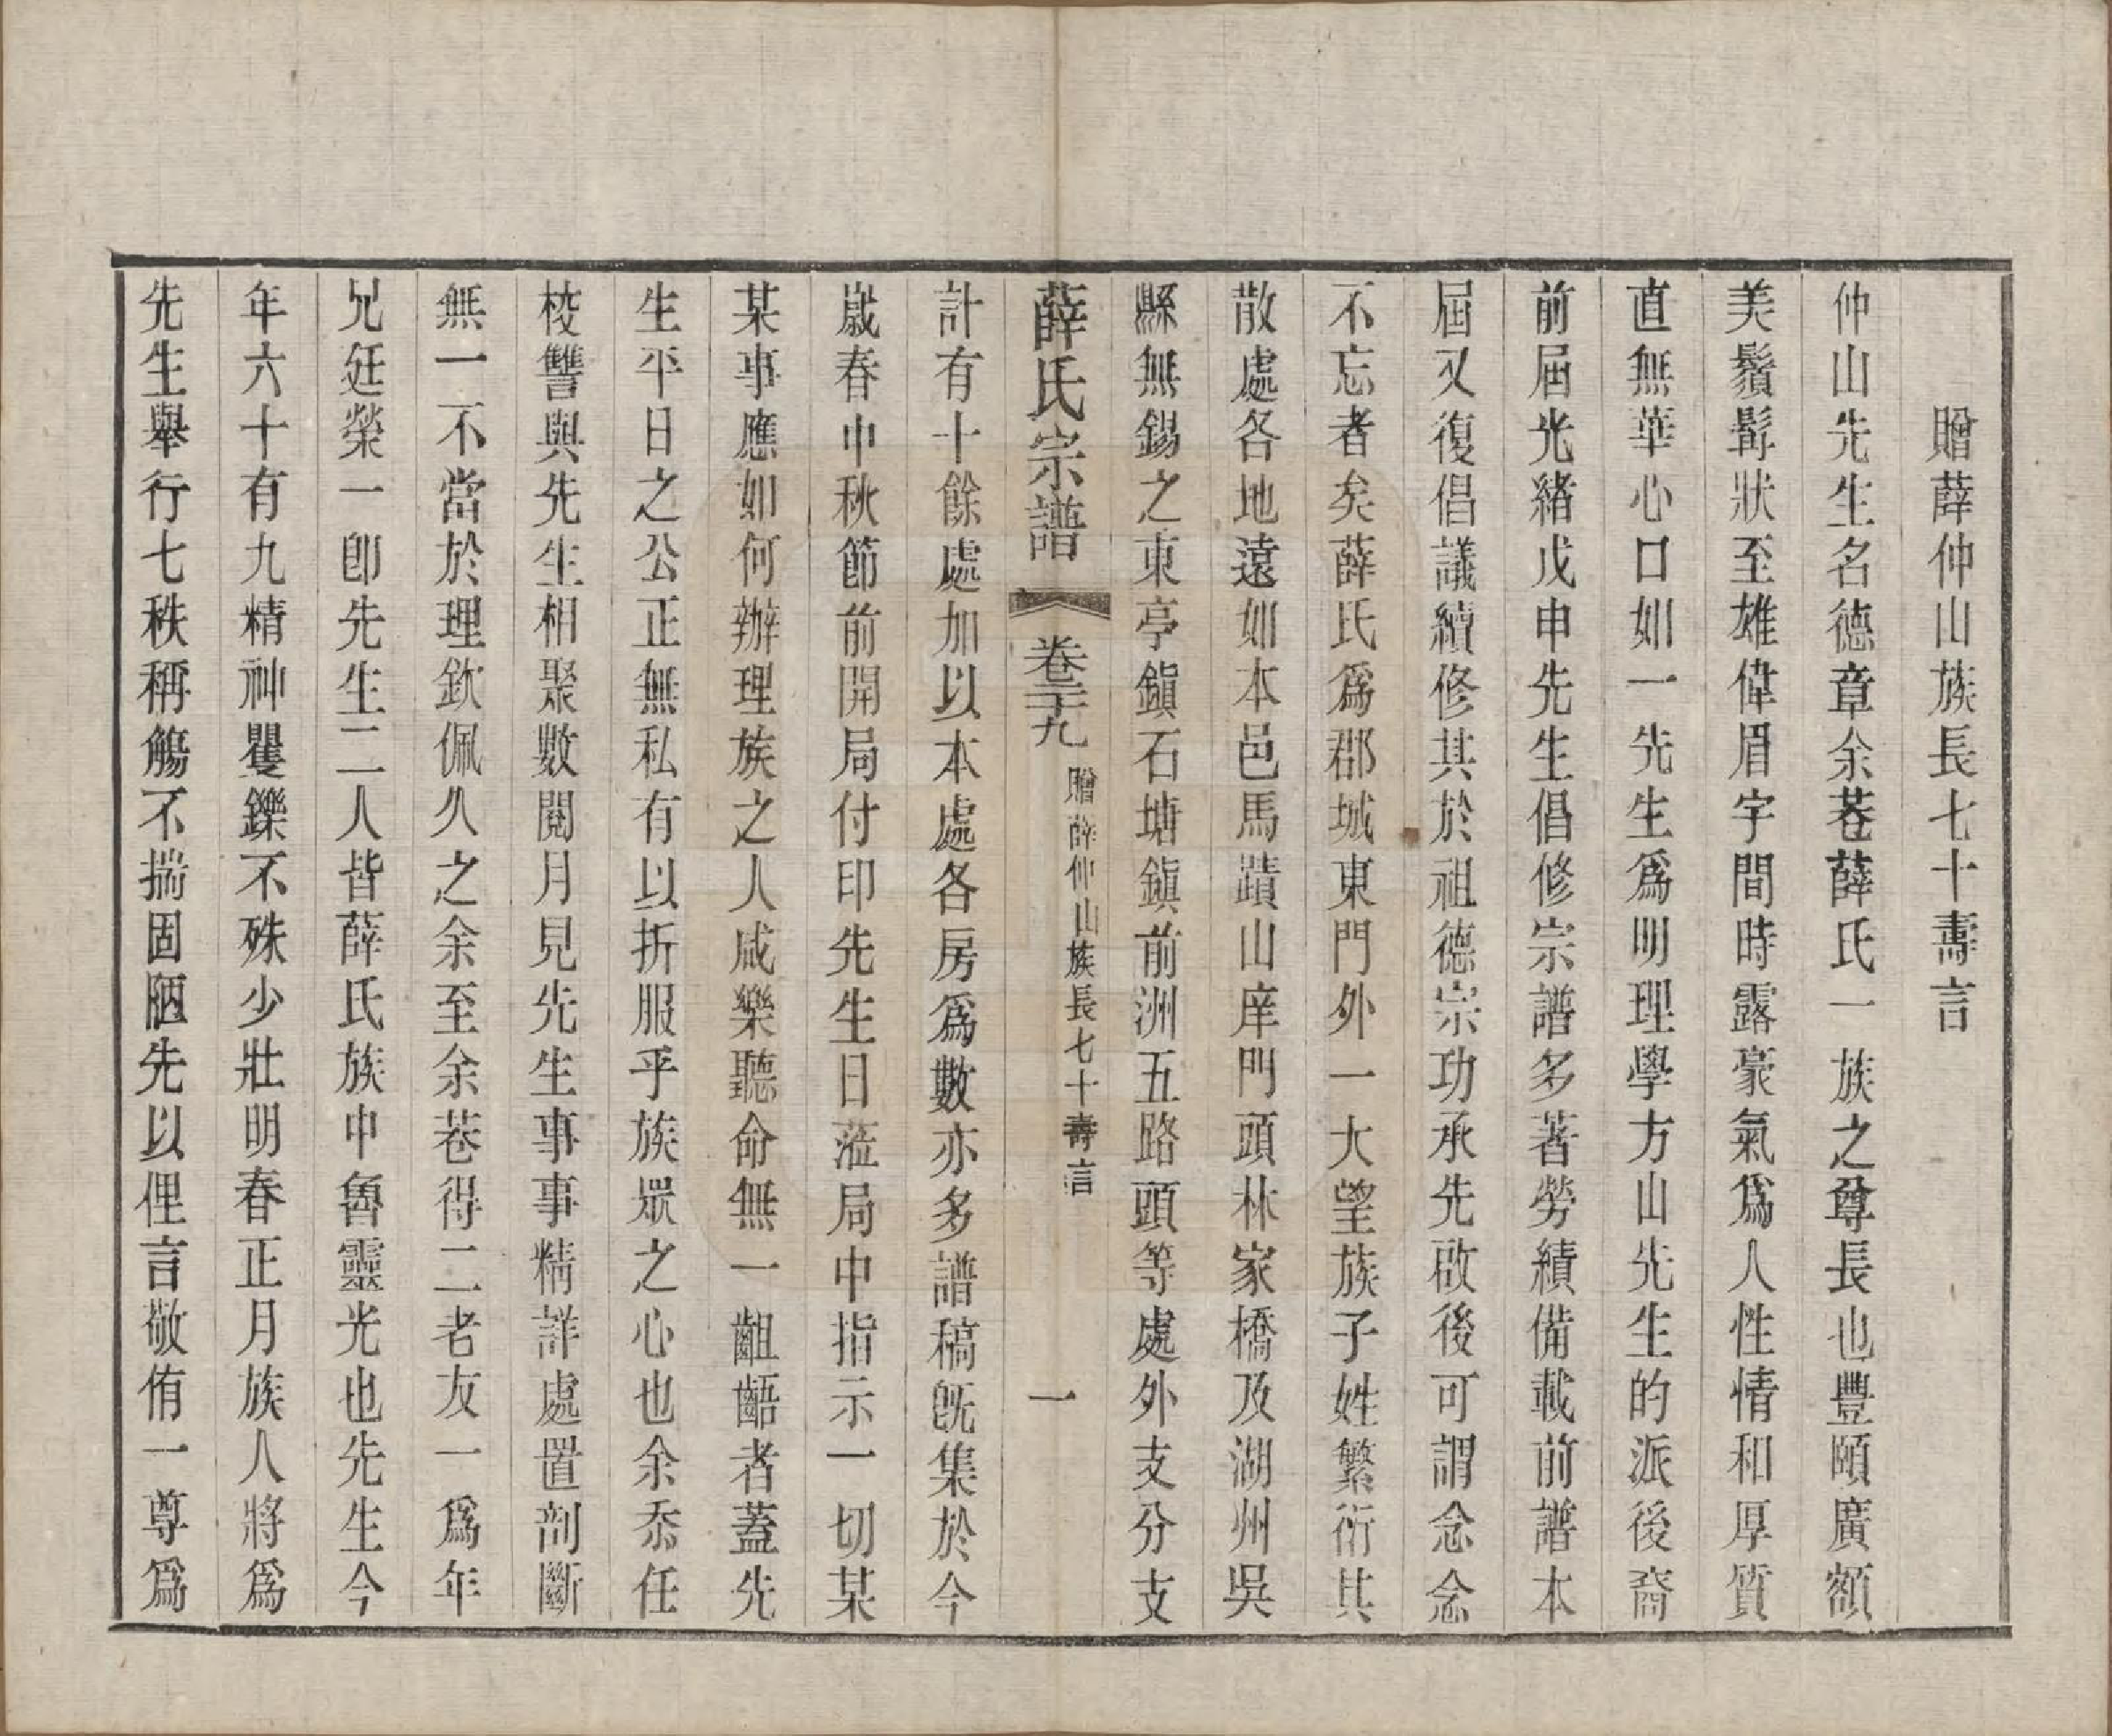 贈薛仲山族長七十壽言
仲山先生名德章余巷薛氏一族之尊長也豐頤廣額
美鬚髯狀至雄偉眉宇間時露豪氣爲人性情和厚質
直無華心口如一先生爲明理學方山先生的派後裔
前屆光緒戊申先生倡修宗譜多著勞績備載前譜本
屆又復倡議續修其於祖德宗功承先啟後可謂念念
不忘者矣薛氏爲郡城東門外一大望族子姓繁衍其
散處各地遠如本邑馬蹟山庠門頭林家橋及湖州吳
縣無錫之東亭鎭石塘鎭前洲五路頭等處外支分支
薛氏宗譜 卷二十九 贈薛仲山族長七十壽言 一
計有十餘處加以本處各房爲數亦多譜稿旣集於今
歲春中秋節前開局付印先生日蒞局中指示一切某
某事應如何辦理族之人咸樂聽命無一齟齬者蓋先
生平日之公正無私有以折服乎族眾之心也余忝任
校讐與先生相聚數閱月見先生事事精詳處置剖斷
無一不當於理欽佩久之余至余巷得二老友一爲年
兄廷榮一卽先生二人皆薛氏族中魯靈光也先生今
年六十有九精神矍鑠不殊少壯明春正月族人將爲
先生舉行七秩稱觴不揣固陋先以俚言敬侑一尊爲